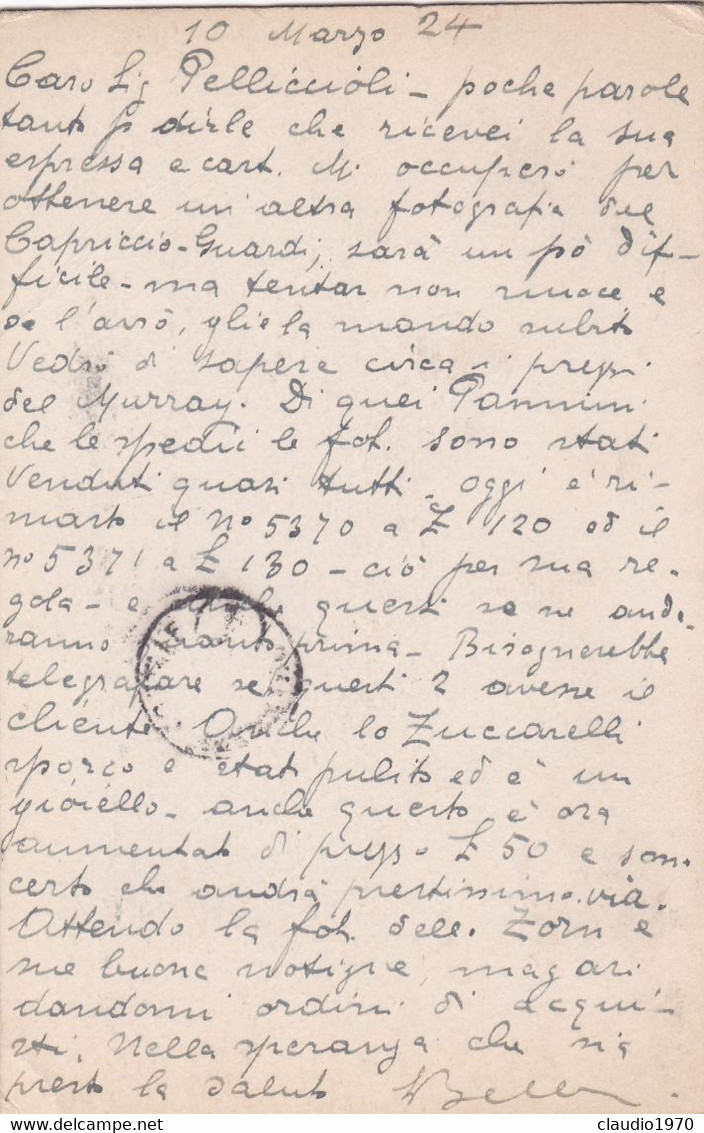 10 Marzo 24
Caro Sig Pelliccioli - poche parole
tanto p dirle che ricevei la sua
espressa e cart. Mi occuperò per
ottenere un'altra fotografia del
Capriccio-Guardi, sarà un pò dif-
ficile - ma tentar non nuoce e
se l'avrò, glie la mando subito
Vedrò di sapere circa i prezzi
del Murray. Di quei Pannini
che le spedii le fot. sono stati
venduti quasi tutti. oggi è ri-
masto il No 5370 a £ 120 ed il
no 5371 a £ 130 - ciò per sua re-
gola - e anche questi se ne ande-
ranno quanto prima - Bisognerebbe
telegrafare se questi 2 avesse il
cliente. Anche lo Zuccarelli
sporco è stato pulito ed è un
gioiello - anche questo è ora
aumentato di prezzo £ 50 e son
certo che andrà prestissimo via.
Attendo la fot. dell. Zorn e
sue buone notizie, magari
dandomi ordini di acqui-
sti. Nella speranza che sia
presto la saluto
claudio1970